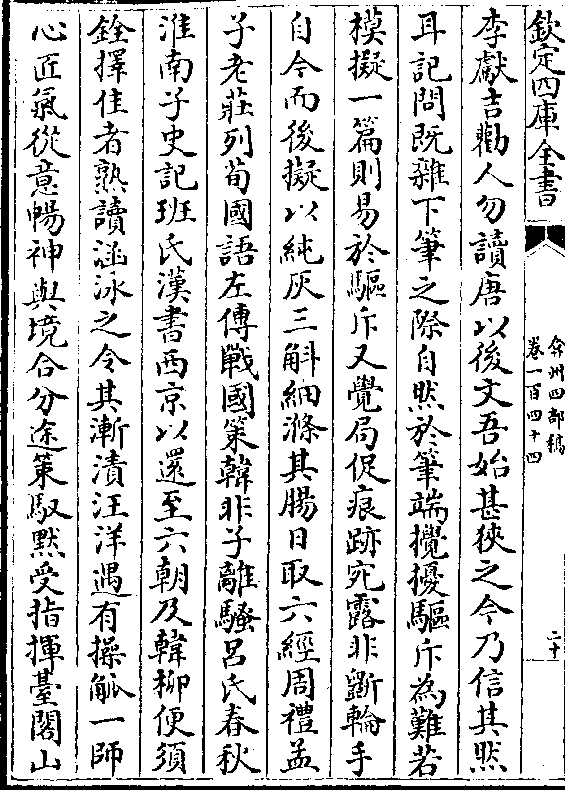 欽定四庫全書
弇州四部稿
卷一百四十四
二十
李獻吉勸人勿讀唐以後文吾始甚狹之今乃信其然
耳記問既雜下筆之際自然於筆端攪擾驅斥為難若
模擬一篇則易於驅斥又覺局促痕跡宛露非斵輪手
自今而後擬以純灰三斛細滌其腸日取六經周禮孟
子老莊列荀國語左傳戰國策韓非子離騷呂氏春秋
淮南子史記班氏漢書西京以還至六朝及韓柳便須
銓擇佳者熟讀涵泳之令其漸漬汪洋遇有操觚一師
心匠氣從意暢神與境合分途策馭默受指揮臺閣山